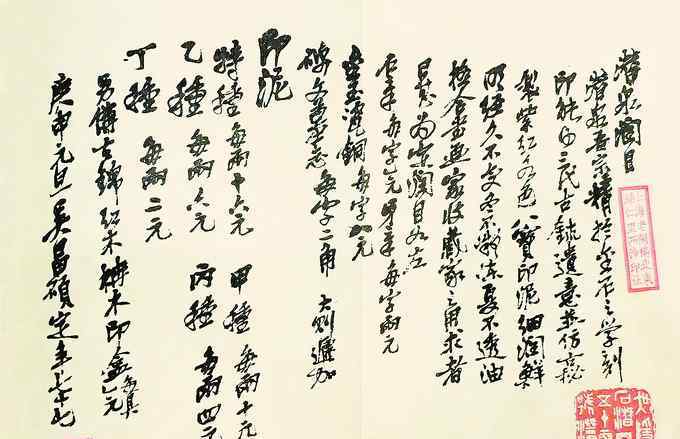 潛泉潤目
潛泉吾宗精於金石之學刻
印能得三代古鉨遺意並仿古秘
製紫紅各色八寶印泥細潤鮮
明經久不變冬不凝凍夏不透油
金書畫家收藏家之用求者
日衆為定潤目如左
石章每字元 牙章每字兩元
晶玉瓷銅每字元
碑文墓志每字二角 大則遞加
印泥
特種每兩十六元 甲種每兩十元
乙種每兩六元 丙種每兩四元
丁種每兩二元
另備古錦紅木楠木印盒每具元
庚申元旦吳昌碩定年七十七